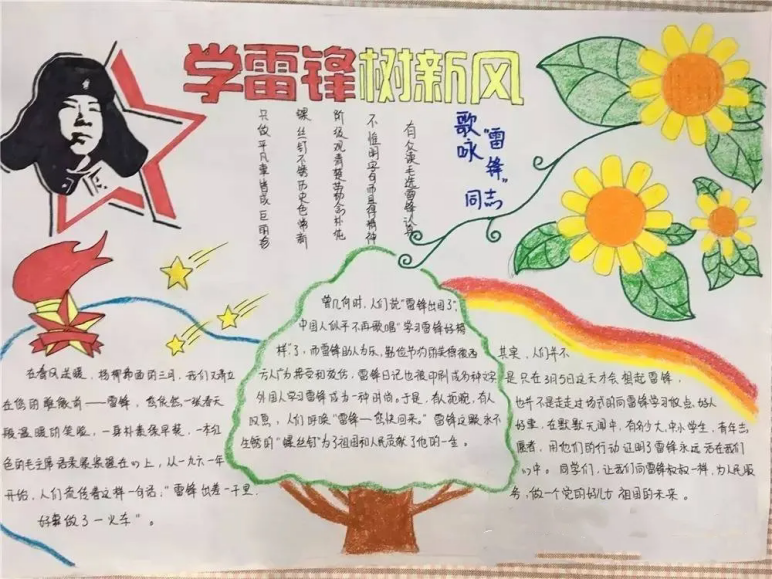 学雷锋树新风
歌咏"雷锋"同志
只做平凡事皆成巨丽
螺丝钉不锈历史色常新
阶级观清楚劳动念朴
不惟明字句而且得精神
有众读毛选雷锋认
在春风送暖,杨柳拂面的三月,我们又肃立
在您的雕像前——雷锋,您依然一张春天
般温暖的笑脸,一身朴素绿军装,一本红
色的毛主席语录紧紧握在心上,从一九六一年
开始,人们流传着这样一句话:"雷锋出差一千里,
好事做了一火车"。
曾几何时,人们说"雷锋出国了",
中国人似乎不再歌唱"学习雷锋好榜
样"了,而雷锋助人为乐,勤俭节约的美德被西
方人广为接受和效仿,雷锋日记也被印刷成多种文字
外国人学习雷锋成为一种时尚。于是,有人抱怨,有人
叹息,人们呼唤"雷锋——您快回来。"雷锋这颗永不
生锈的"螺丝钉"为了祖国和人民贡献了他的一生。
其实,人们并不
是只在3月5日这天才会想起雷锋,
也并不是走走过场式的向雷锋学习做点好人
好事,在默默无闻中,有多少大、中小学生,青年志
愿者,用他们的行动证明了雷锋永远活在我们
心中。同学们,让我们向雷锋叔叔一样,为人民服
务,做一个党的好儿女祖国的未来。